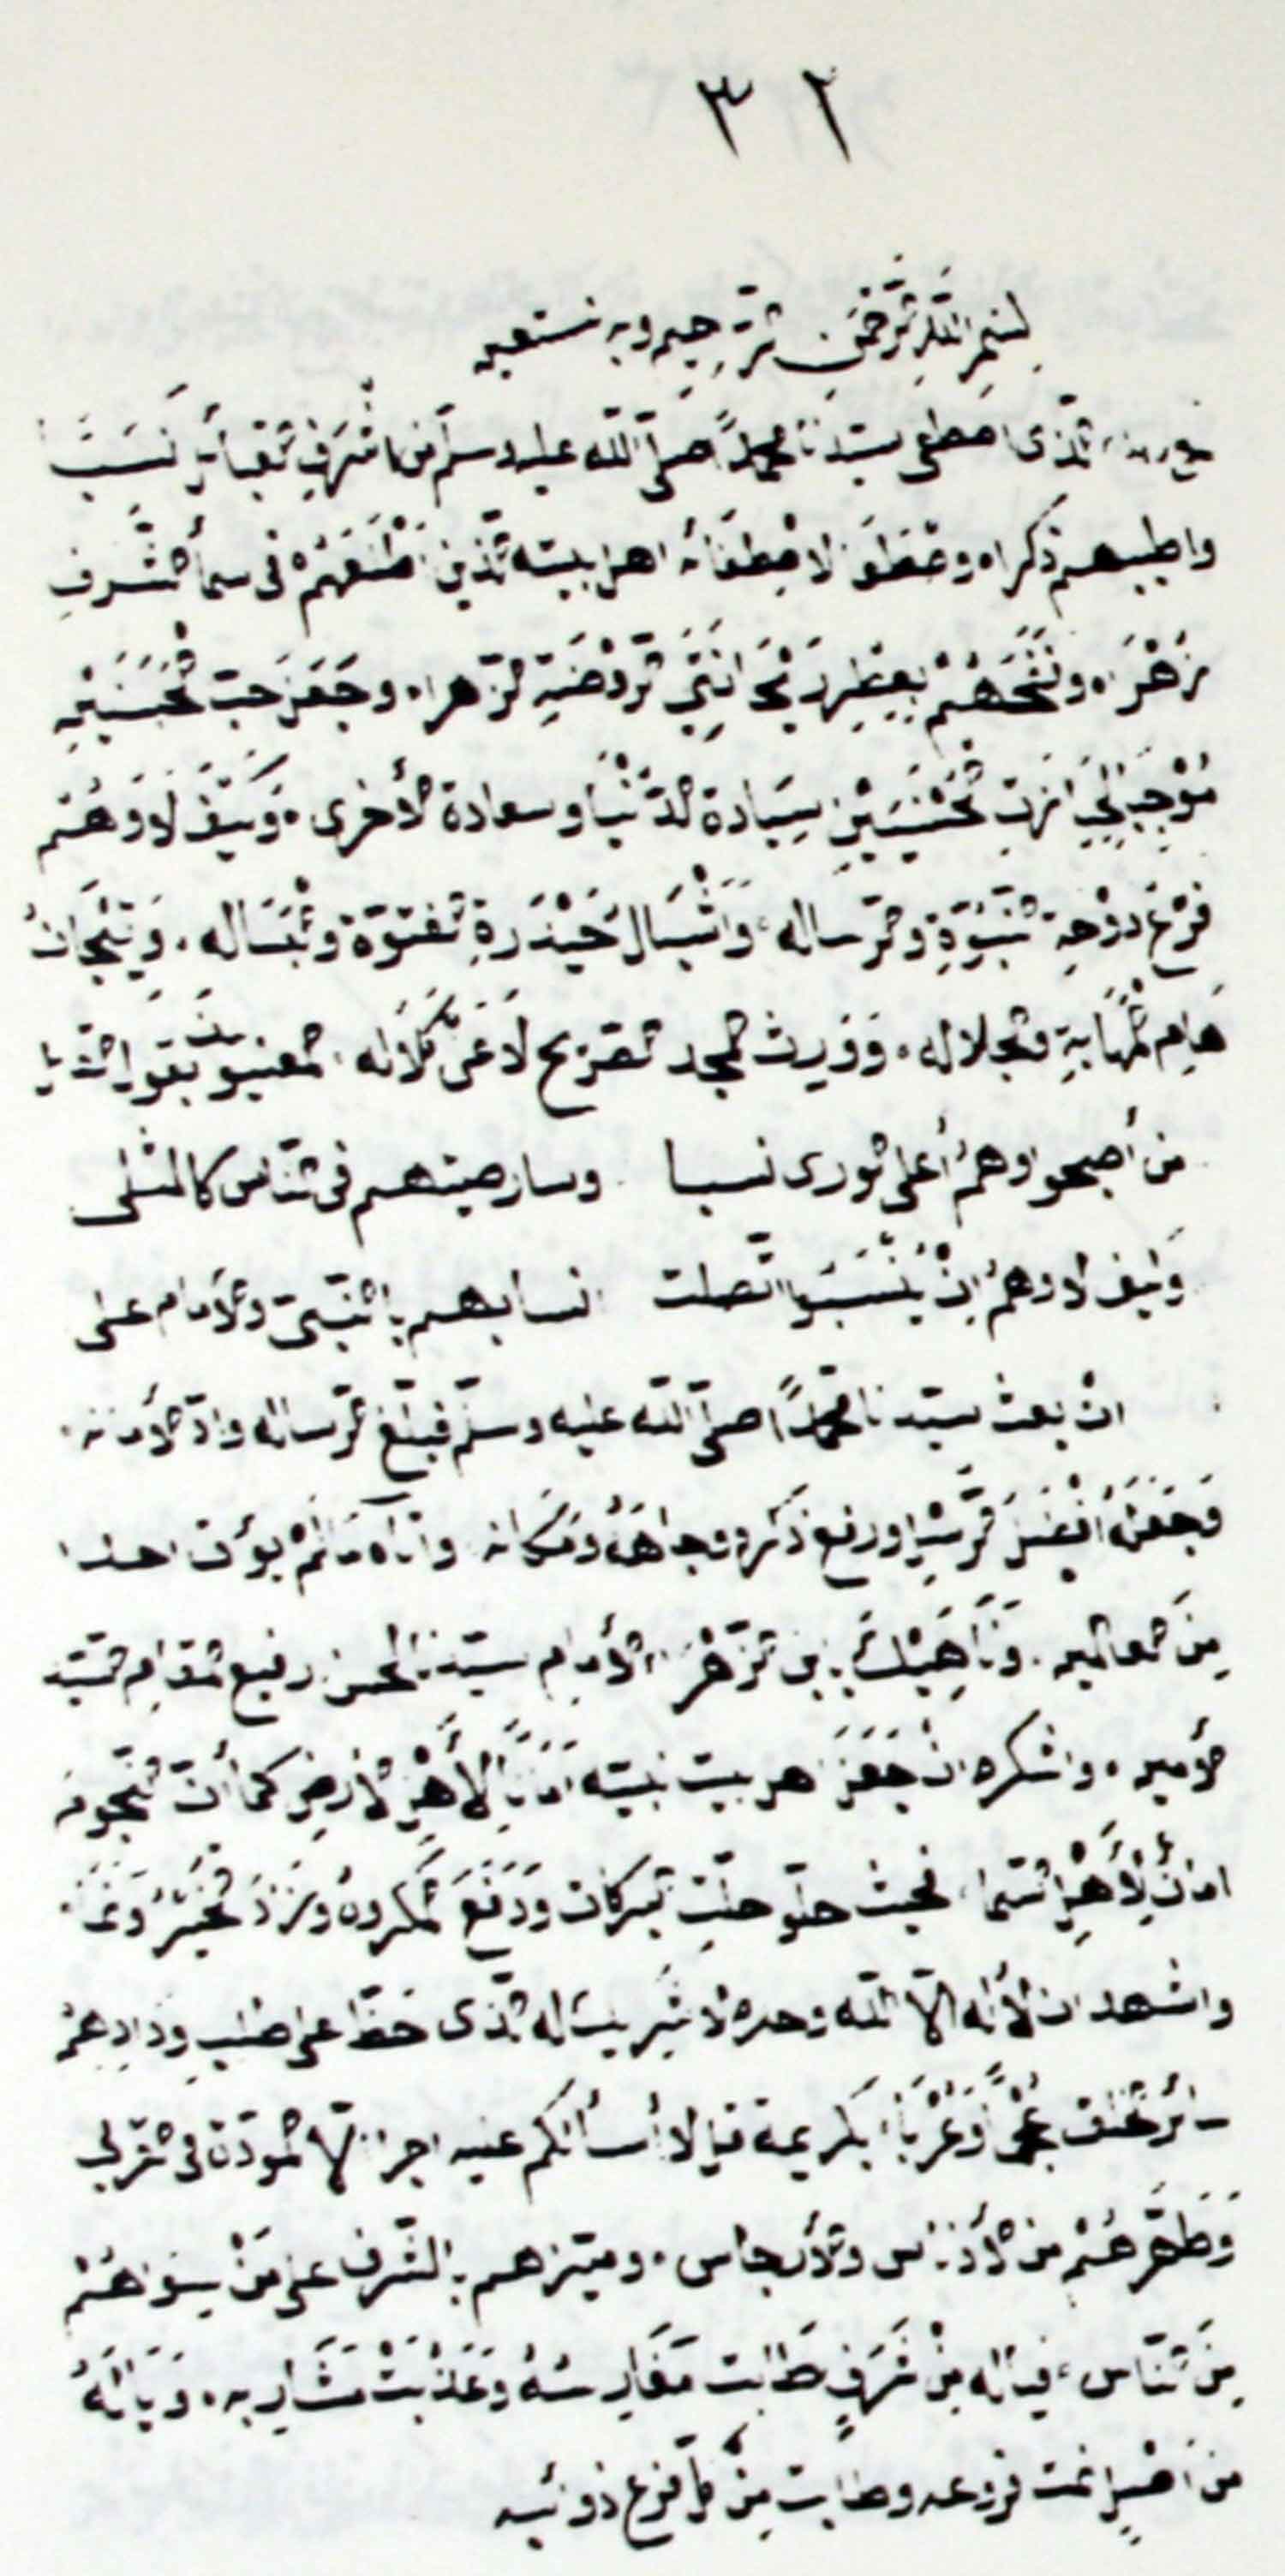 ٣٢
بسم الله الرحمن الرحيم وبه نستعين
الذى اصطفى سيدنا محمداً صلى الله عليه وسلم من اشرف القبائل نسباً
واطيبهم ذكرا، واصطفى لاصطفائه اهل بيته الذين اطلعهم فى سماء الشرف
زهرا، ونفحهم بعطر ريحانتي الروضة الزهراء وجعل حب الحسنين
موجب سيادة الدنيا وسعادة الأخرى، وكيف لا وهم
فرع دوحة النبوة والرساله، واشبال حيدرة الفتوة والبساله، وتيجان
هام المهابة والجلاله، ووريث المجد الصريح لا عن كلاله، المعنيون بقول القائل
من أصبحوا وهم أعلى الورى نسبا وسار صيتهم فى الناس كالمثل
وكيف لا وهم ان ينسبوا اتصلت انسابهم بالنبى والامام على
ان بعث سيدنا محمداً صلى الله عليه وسلم فبلغ الرساله وادى الأمانه
فجعله افضل قريش ورفع ذكره وجاهه ومكانه وآتاه ما لم يؤت احدا
من العالمين، وناهيك بابن الزهراء الأمام سيدنا الحسن رفيع المقام السيد
الأمين، واشكره ان جعل اهل بيت نبيه امانا لأهل الأرض كما أن النجوم
امان لأهل السما، فحيث حلو حلت البركات ودفع المكروه ونزل الخير ونما
واشهد ان لا اله الا الله وحده لا شريك له الذى حض على طلب ودادهم
سائر الخلق عجماً وعرباً بكريمة قل لا أسألكم عليه اجرا الا المودة فى القربى
وطهرهم من الأدناس والأرجاس، وميزهم بالشرف على من سواهم
من الناس، فياله من شرف طابت مغارسه وعذبت مشاربه، وياله
من اصل نمت فروعه وطابت من كل فرع ذوائبه